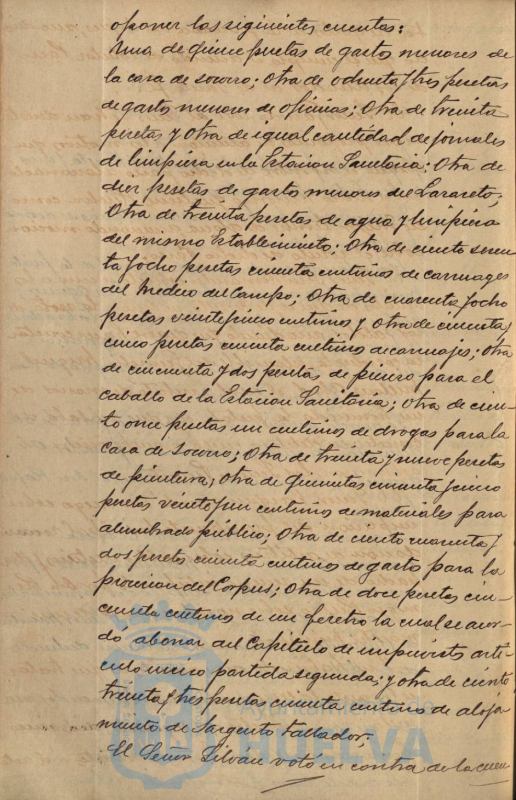 oponer las siguientes cuentas:
Una de quince pesetas de gastos menores de
la casa de socorro; Otra de ochenta y tres pesetas
de gastos menores de oficinas; Otra de treinta
pesetas y otra de igual cantidad de jornales
de limpieza en la Estacion Sanitaria; Otra de
diez pesetas de gastos menores del Lazareto;
Otra de treinta pesetas de agua y limpieza
del mismo Establecimiento; Otra de ciento sesen
ta y ocho pesetas cincuenta centimos de carruages
del Medico del Campo; Otra de cuarenta y ocho
pesetas veinte y cinco centimos y Otra de cincuenta y
cinco pesetas cincuenta centimos de carruajes; Otra
de cincuenta y dos pesetas de pienso para el
caballo de la Estacion Sanitaria; Otra de cien-
to once pesetas un centimo de drogas para la
casa de Socorro; Otra de treinta y nueve pesetas
de pintura; Otra de quinientas cincuenta y cinco
pesetas veinte y un centimos de materiales para
alumbrado público; Otra de ciento cuarenta y
dos pesetas cincuenta centimos de gasto para la
procesion del Corpus; Otra de doce pesetas cin-
cuenta centimos de un feretro la cual se acor-
dó abonar del Capitulo de imprevistos arti-
culo unico partida segunda; y otra de ciento
treinta y tres pesetas cincuenta centimos de aloja
miento de Sargento tallador.
El Señor Silván votó en contra de la cuen
HUELVA